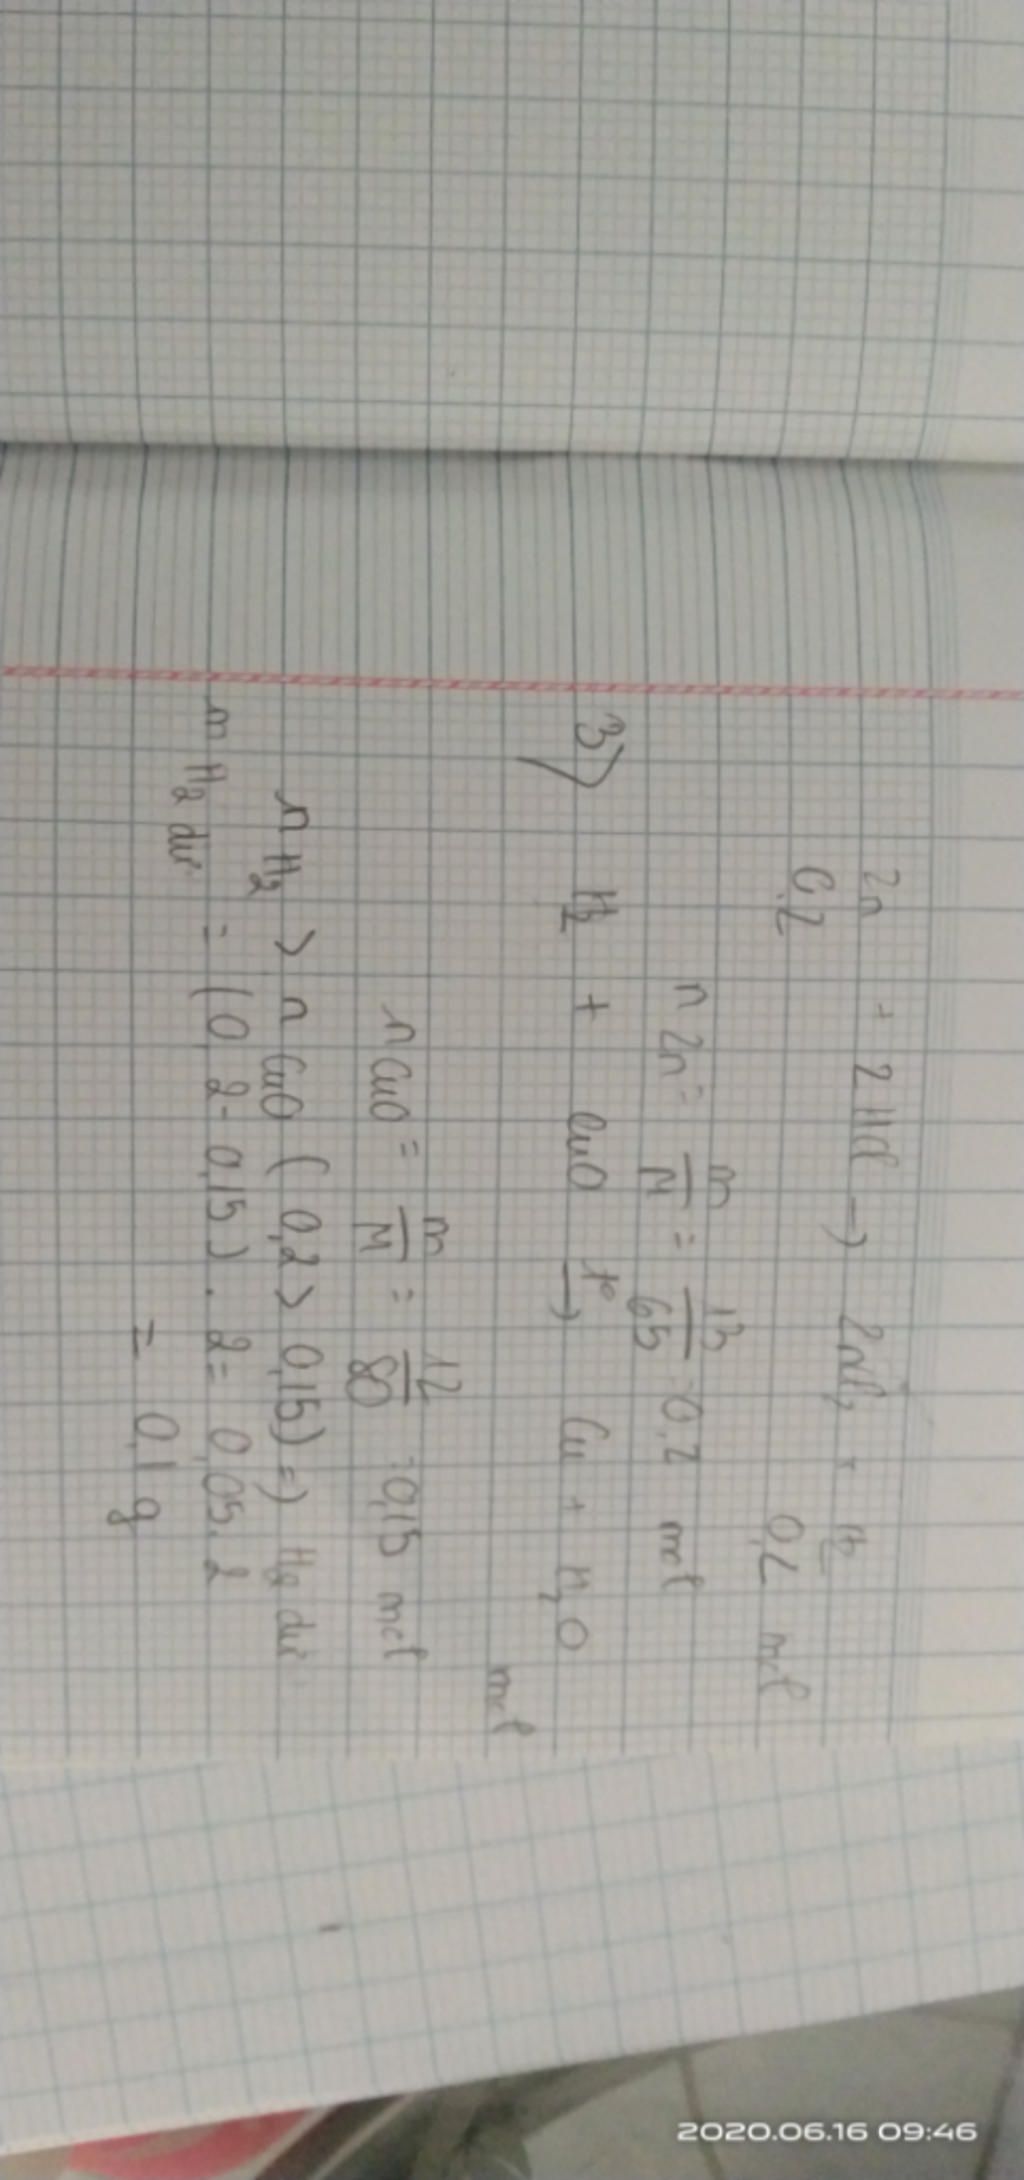 Zn + 2HCl → ZnCl2 + H2
0,2 0,2 mol
n Zn = m/M = 13/65 = 0,2 mol
3) H2 + CuO t° → Cu + H2O
mol
n CuO = m/M = 12/80 = 0,15 mol
n H2 > n CuO ( 0,2 > 0,15) => H2 dư
m H2 dư = (0,2 - 0,15) . 2 = 0,05 . 2
= 0,1 g
2020.06.16 09:46